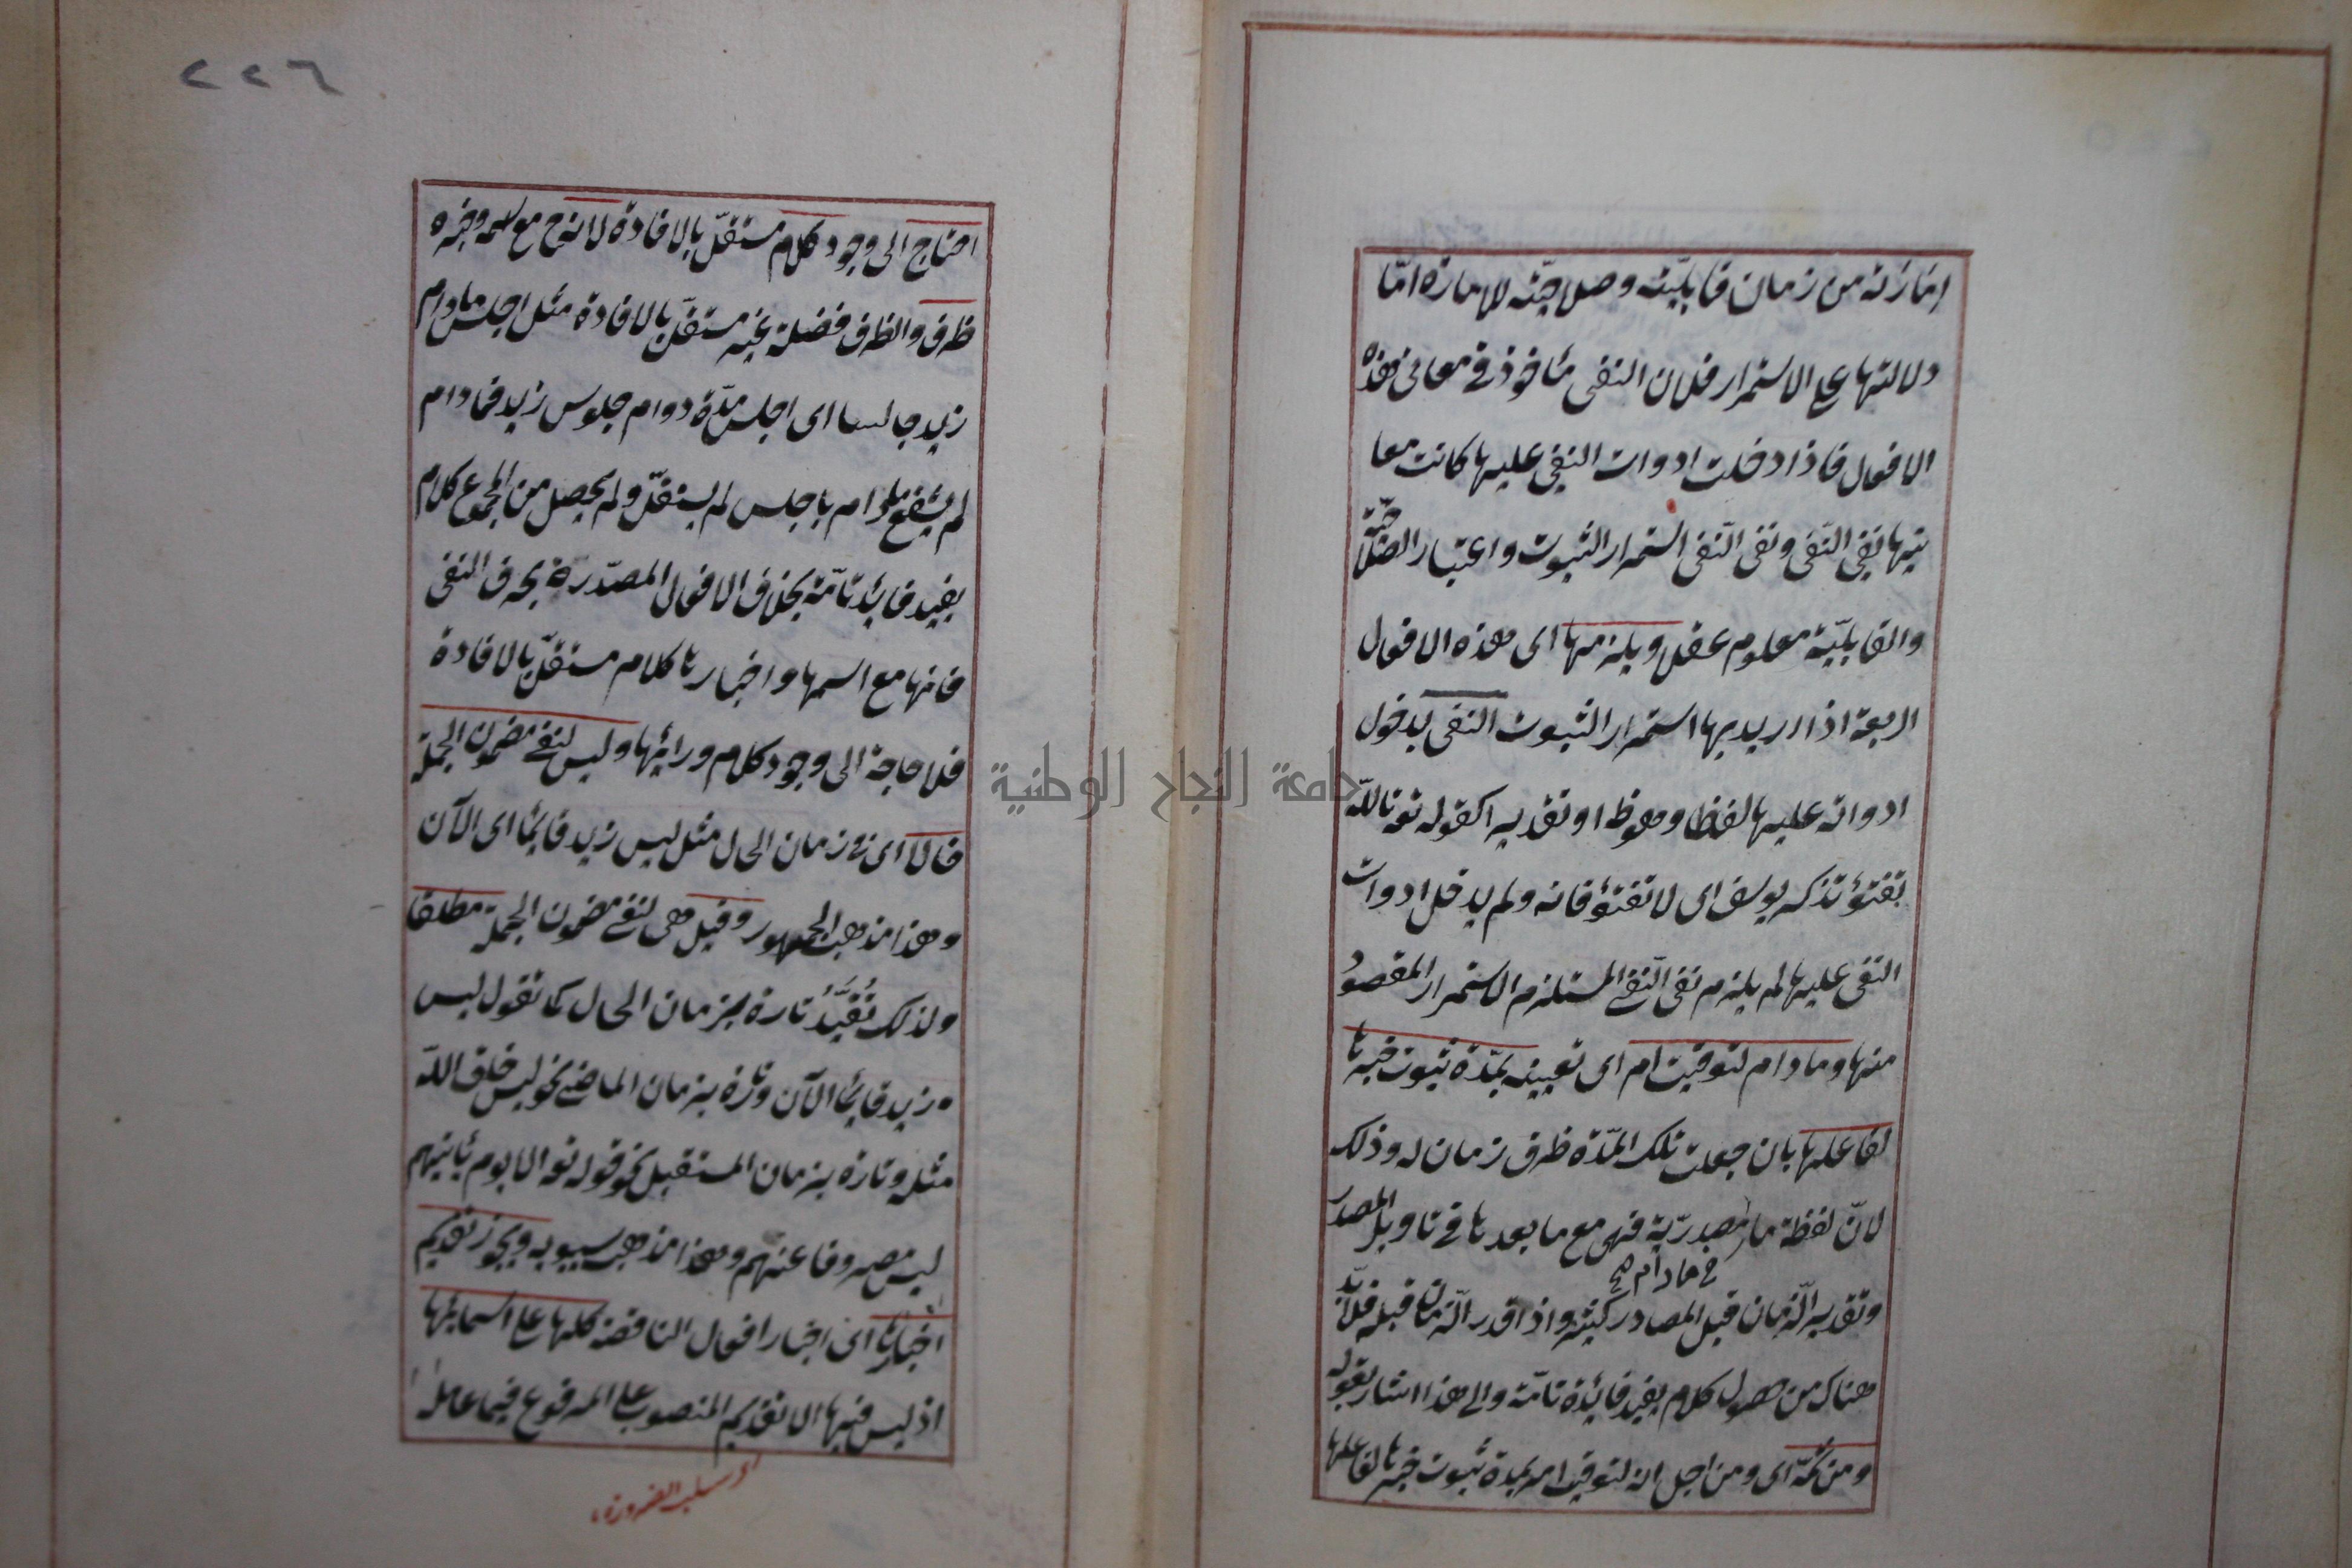 امارته من زمان قابليته وصلاحيته للامارة امّا
دلالتها على الاستمرار فلان النفى مأخوذ فى معانى هذه
الافعال فاذا دخلت ادوات النفى عليها كانت معا
نيها نفى النّفى ونفى النّفى استمرار الثبوت واعتبار الصّلاحيّة
والقابليّة معلوم عقلا ويلزمها اى هذه الافعال
الاربعة اذا اريد بها استمرار الثبوت النفى بدخول
ادواته عليها لفظا وهو ظ او تقديرا كقوله تعه تاللّه
تفتؤ تذكر يوسف اى لا تفتؤ فانه ولم يدخل ادوات
النفى عليها لم يلزم نفى النّفى المستلزم الاستمرار المقصود
منها وما دام لتوقيت امر اى تعيينه بمدّة ثبوت خبرها
لفاعلها بان جعلت تلك المدّة ظرف زمان له وذلك
لانّ لفظة ما مصدريّة فهى مع ما بعدها فى تاويل المصدر
فى مادام صح
وتقدير الزّمان قبل المصادر كثير واذا قدر الزّمان قبله فلابدّ
هناك من حصول كلام يفيد فائدة تامّة والى هذا اشار بقوله
ومن ثمّه اى ومن اجل انه لتوقيت امر بمدة ثبوت خبرها لفاعلها
٢٢٦
احتاج الى وجود كلام مستقلّ بالافادة لانه ح مع اسمه وخبره
ظرف والظرف فضلة غير مستقلّ بالافادة مثل اجلس ما دام
زيد جالسا اى اجلس مدّة دوام جلوس زيد فما دام
لم يشفع مادام باجلس لم يستقلّ ولم يحصل من المجموع كلام
يفيد فائدة تامّة بخلاف الافعال المصدّرة بحرف النفى
فانها مع اسمها واخبارها كلام مستقلّ بالافادة
فلا حاجة الى وجود كلام ورائها وليس لنفى مضمون الجملة
حالا اى فى زمان الحال مثل ليس زيد قائما اى الآن
وهذا مذهب الجمهور وقيل هى لنفى مضمون الجملة مطلقا
ولذلك تُقَيَّدُ تارة بزمان الحال كما تقول ليس
زيد قائما الآن وتارة بزمان الماضى نحو ليس خلق اللّه
مثله وتارة بزمان المستقبل نحو قوله تعه الا يوم يأتيهم
ليس مصروفا عنهم وهذا مذهب سيبويه ويجوز تقديم
اخبارها اى اخبار افعال الناقصة كلها على اسمائها
اذ ليس فيها الا تقديم المنصوب على المرفوع فيما عامله
سلب الضرورة
جامعة النجاح الوطنية